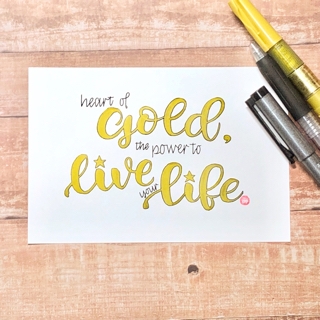 heart of
gold,
the power to
live your life